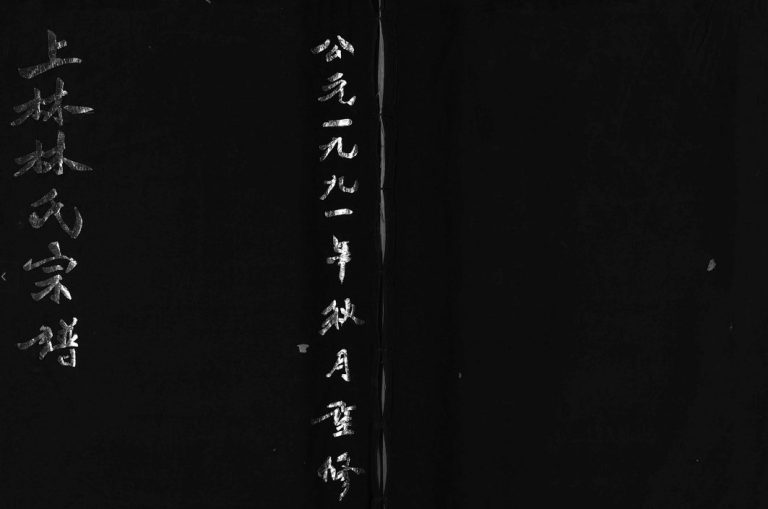 公元一九九一年秋月重修
上林林氏宗譜